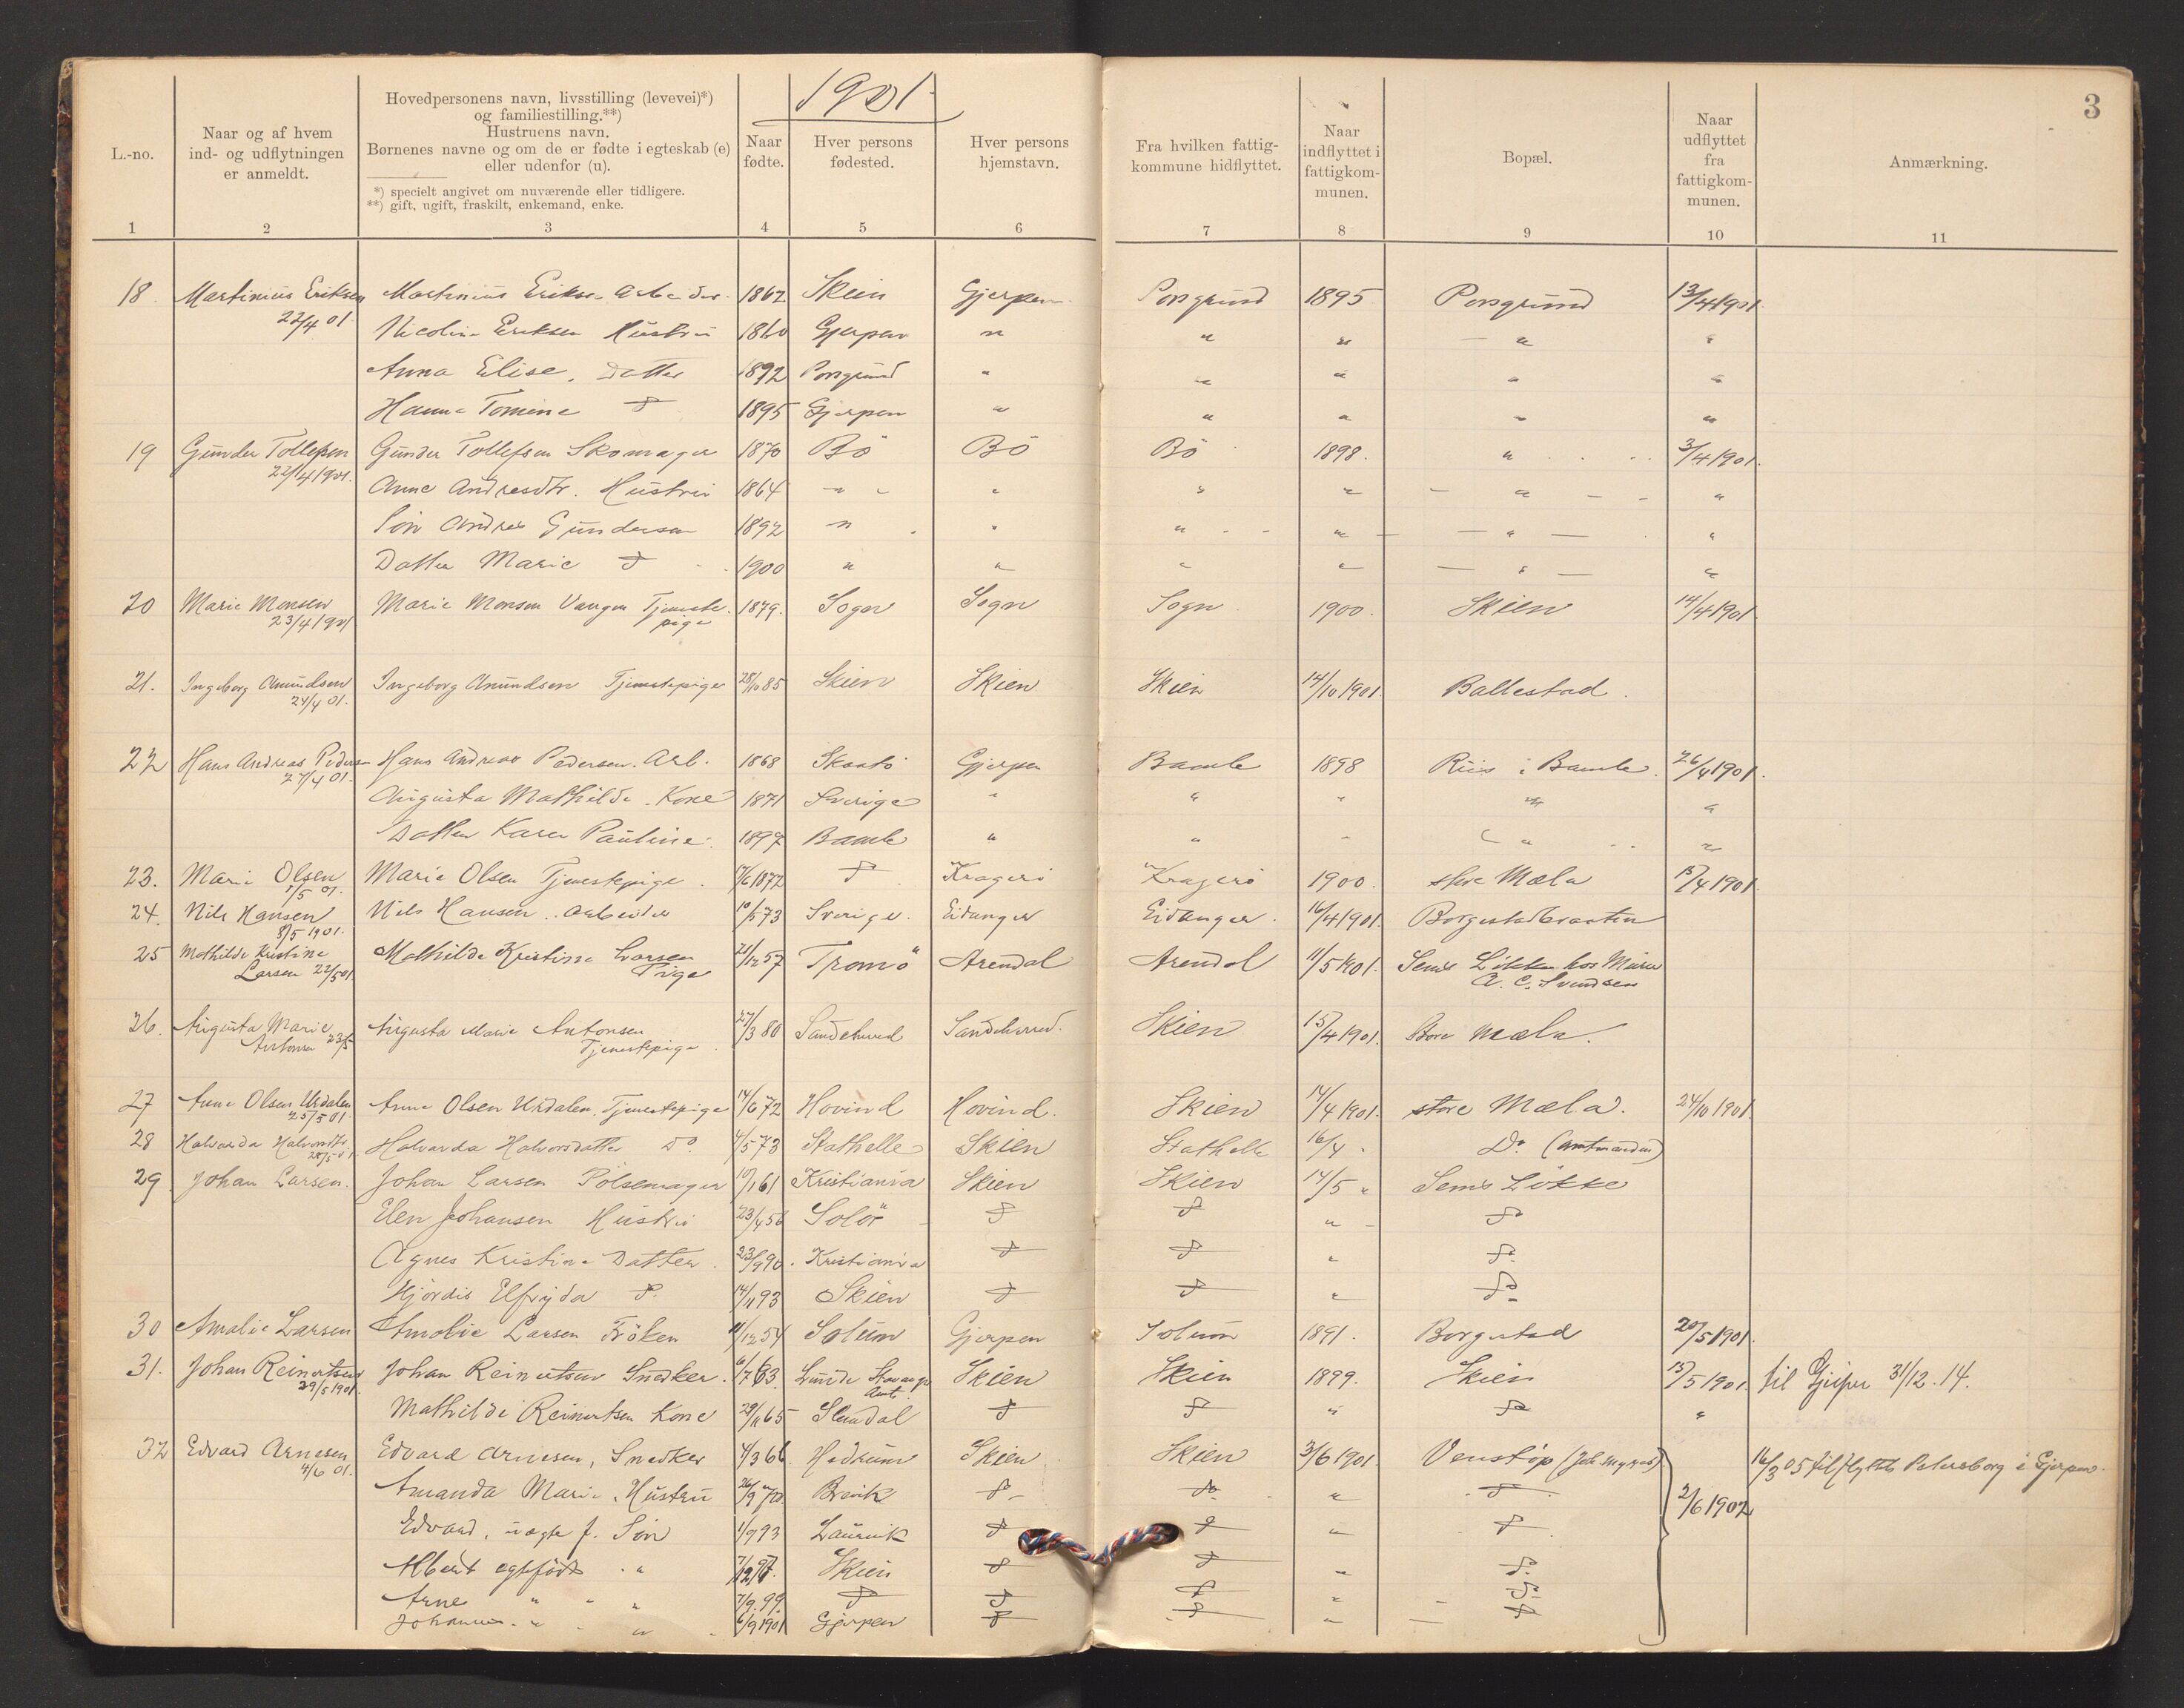 1901.
3
L.-no.
Naar og af hvem
ind- og udflytningen
er anmeldt.
Hovedpersonens navn, livsstilling (levevei)*)
og familiestilling.**)
Hustruens navn.
Børnenes navne og om de er fødte i egteskab (e)
eller udenfor (u).
*) specielt angivet om nuværende eller tidligere.
**) gift, ugift, fraskilt, enkemand, enke.
Naar
fødte.
Hver persons
fødested.
Hver persons
hjemstavn.
Fra hvilken fattig-
kommune hidflyttet.
Naar
indflyttet i
fattigkom-
munen.
Bopæl.
Naar
udflyttet
fra
fattigkom-
munen.
Anmærkning.
1 2 3 4 5 6 7 8 9 10 11
18 Martinius Eriksen Martinius Eriksen Arbeider 1862 Skien Gjerpen Porsgrund 1895 Porsgrund 13/4 1901
22/4 01. Nicoline Eriksen Hustru 1860 Gjerpen " " " " "
Anna Elise, Datter 1892 Porsgrund " " " " "
Hanna Tomine do 1895 Gjerpen " " " " "
19 Gunder Tollefsen Gunder Tollefsen Skomager 1870 Bö Bö Bö 1898. " 3/4 1901.
22/4 1901. Anne Andresdtr. Hustru 1864 " " " " " "
Sön Andres Gundersen 1892 " " " " " "
Datter Marie do 1900 " " " " " "
20 Marie Monsen Marie Monsen Vangen Tjeneste- 1879. Sogn Sogn Sogn 1900. Skien 14/4 1901
23/4 1901 pige
21. Ingeborg Amundsen Ingeborg Amundsen Tjenestepige 28/10 85 Skien Skien Skien 14/10 1901. Ballestad.
24/4 01.
22 Hans Andreas Pedersen Hans Andreas Pedersen. Arb. 1868 Skaatö Gjerpen Bamle 1898 Riis i Bamle. 26/4 1901.
27/4 01. Augusta Mathilde. Kone 1871 Sverige " " " " "
Datter Karen Pauline. 1897 Bamle " " " " "
23. Marie Olsen Marie Olsen Tjenestepige. 1872 do Kragerö Kragerö 1900. store Mæla 15/4 1901
1/5 01.
24. Nils Hansen Nils Hansen. Arbeider 10/5 73 Sverige. Eidanger Eidanger. 16/4 1901. Borgestadbraaten
8/5 1901.
25 Mathilde Kristine Mathilde Kristine Larsen 21/12 57 Tromö Arendal Arendal 11/5 1901. Sems Løkken hos Murer
Larsen 22/5 01. Pige A. C. Svendsen
26. Augusta Marie Augusta Marie Antonsen 27/3 80 Sandeherred Sandeherred. Skien 15/4 1901. Store Mæla.
Antonsen 23/5 Tjenestepige.
27 Anne Olsen Urdalen Anne Olsen Urdalen. Tjenestepige 14/6 72 Hovind Hovind. Skien 14/4 1901. store Mæla. 24/10 1901.
25/5 01.
28 Halvarda Halvorsdtr. Halvarda Halvorsdatter Do. 4/5 73 Stathelle Skien Stathelle 16/4 " Do (Amtmanden)
29 Johan Larsen. Johan Larsen Pölsemager 10/1 61 Kristiania Skien Skien 14/5 " Sems Løkke
Elen Johansen Hustru 23/4 56 Solör do do " do
Agnes Kristine Datter. 23/9 90. Kristiania do do " do
Hjördis Elfrida do. 14/11 93 Skien do do " do
30 Amalie Larsen Amalie Larsen Fröken 11/12 54 Solum Gjerpen Solum 1891. Borgestad 20/5 1901.
31. Johan Reinertsen Johan Reinertsen Snedker. 6/7 63. Lunde Stavanger Skien Skien 1899. Skien 15/5 1901. til Gjerpen 31/12.14.
29/5 1901. Amt.
Mathilde Reinertsen Kone 29/11 65 Slemdal do do " do "
32 Edvard Arnesen Edvard Arnesen, Snedker 4/3 66 Hedrum Skien Skien 3/6 1901. Venstöp (Joh. Myhres) 16/3 05 tilflyttet Petersborg i Gjerpen.
4/6 01. Amanda Marie. Hustru 26/9 70. Brevik do do " do 2/6 1902
Edvard, uægte f. Sön 1/9 93 Laurvik do do " do
Albert egtefödt " 7/12 97. Skien do do " do
Arne " " " 7/9. 99. do do do " do
Johannes " " 6/9 1901 Gjerpen do do " do